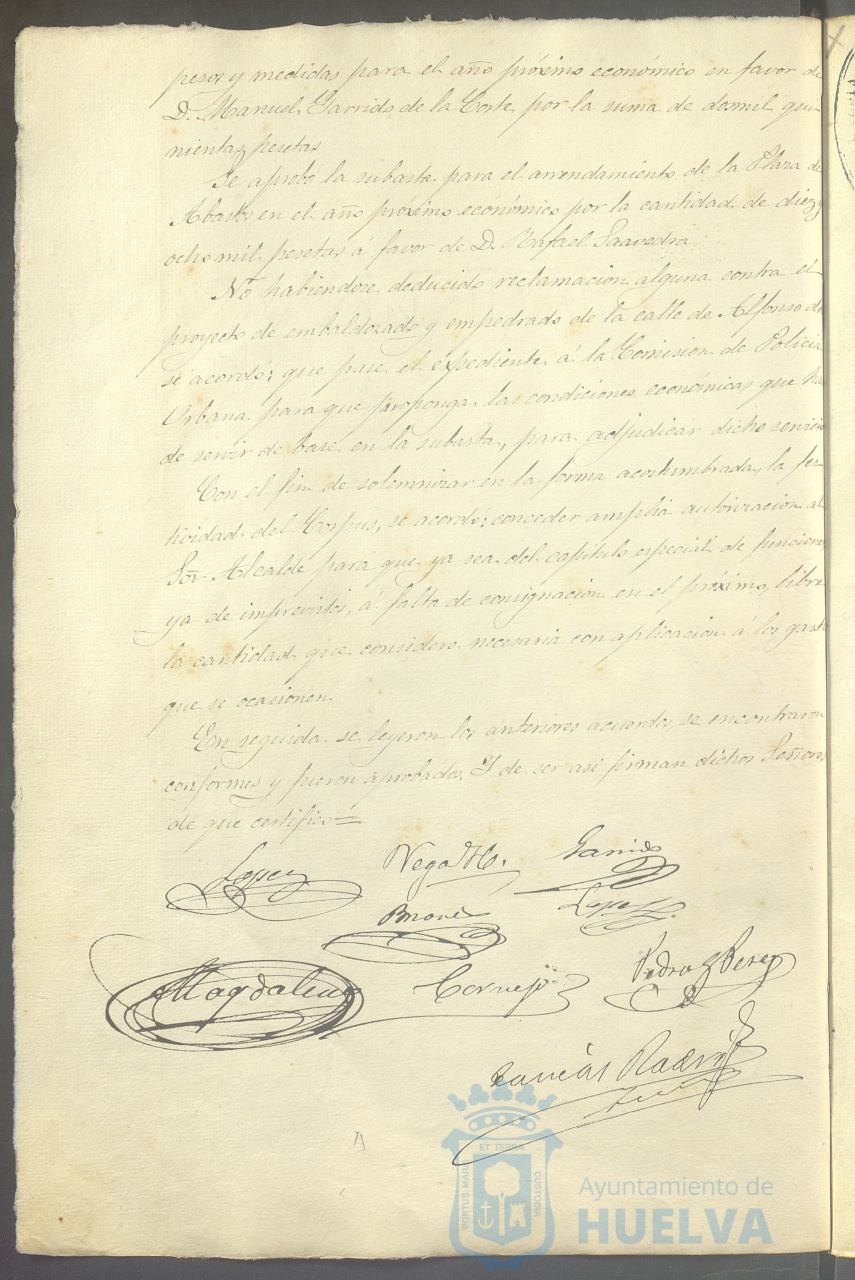 pesos y medidas para el año próximo económico en favor de
D. Manuel Garrido de la Corte por la suma de dosmil qui-
nientas pesetas
Se aprobó la subasta para el arrendamiento de la Plaza de
Abastos en el año próximo económico por la cantidad de diez y
ocho mil pesetas á favor de D. Rafael Saavedra
No habiendose deducido reclamacion alguna contra el
proyecto de embaldozado y empedrado de la calle de Alfonso
se acordó: que pase el expediente á la Comision de Policia
Urbana para que proponga las condiciones económicas que ha
de servir de base en la subasta, para adjudicar dicho servicio
Con el fin de solemnizar en la forma acostumbrada la fes-
tividad del Corpus, se acordó: conceder amplia autorizacion al
Sor Alcalde para que ya sea del capitulo especial de funciones
ya de imprevistos, á falta de consignacion en el próximo, libre
la cantidad que considere necesaria con aplicacion á los gast
que se ocasionen.
En seguida se leyeron los anteriores acuerdos, se encontraron
conformes y fueron aprobados. Y de ser asi firman dichos Señores
de que certifico=
Lopez Vega Garrido
Lopez
Magdalena Cornejo Pedro Perez
ET TERRÆ
PORTUS MARIS CUSTODIA
Ayuntamiento de
HUELVA